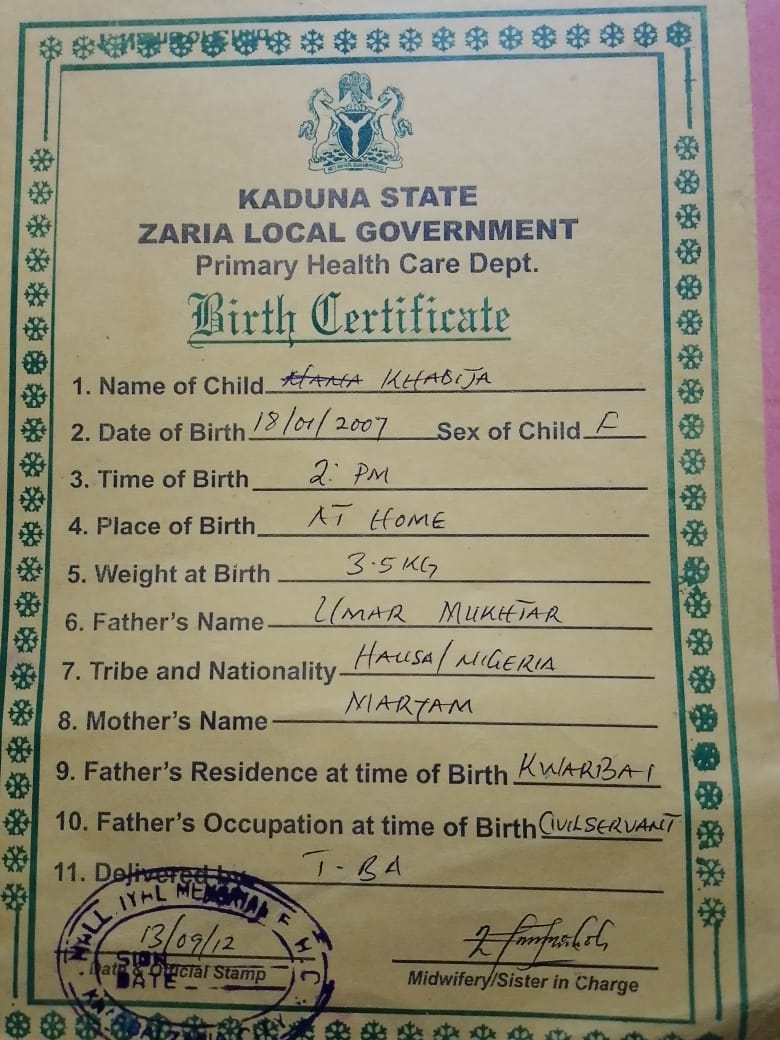 KADUNA STATE
ZARIA LOCAL GOVERNMENT
Primary Health Care Dept.
Birth Certificate
1. Name of Child NANA KHADIJA
2. Date of Birth 18/01/2007 Sex of Child F
3. Time of Birth 2: PM
4. Place of Birth AT HOME
5. Weight at Birth 3.5KG
6. Father's Name UMAR MUKHTAR
7. Tribe and Nationality HAUSA/NIGERIA
8. Mother's Name MARYAM
9. Father's Residence at time of Birth KWARBAI
10. Father's Occupation at time of Birth CIVILSERVANT
11. Delivered by T-BA
MEMORIAL
13/09/12
SIGN
Date & Official Stamp
DATE
Midwifery/Sister in Charge
ZARIA CITY